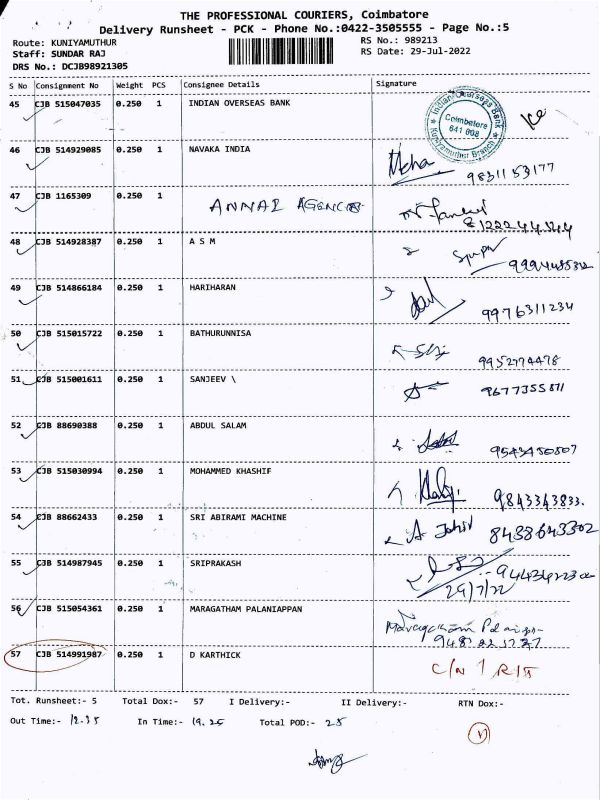 THE PROFESSIONAL COURIERS, Coimbatore
Delivery Runsheet - PCK - Phone No.:0422-3505555 - Page No.:5
Route: KUNIYAMUTHUR RS No.: 989213
Staff: SUNDAR RAJ RS Date: 29-Jul-2022
DRS No.: DCJB98921305
S No Consignment No Weight PCS Consignee Details Signature
45 CJB 515047035 0.250 1 INDIAN OVERSEAS BANK
Indian Overseas Bank Coimbatore 641 008 Kuniyamuthur Branch
46 CJB 514929085 0.250 1 NAVAKA INDIA Neha 9831153177
47 CJB 1165309 0.250 1 ANNAI AGENCIES
48 CJB 514928387 0.250 1 A S M
49 CJB 514866184 0.250 1 HARIHARAN 9976311234
50 CJB 515015722 0.250 1 BATHURUNNISA 9952774478
51 CJB 515001611 0.250 1 SANJEEV \
52 CJB 88690388 0.250 1 ABDUL SALAM 9543450807
53 CJB 515030994 0.250 1 MOHAMMED KHASHIF 9843343833.
54 CJB 88662433 0.250 1 SRI ABIRAMI MACHINE 8438643302
55 CJB 514987945 0.250 1 SRIPRAKASH
29/7/22
56 CJB 515054361 0.250 1 MARAGATHAM PALANIAPPAN
57 CJB 514991987 0.250 1 D KARTHICK
Tot. Runsheet:- 5 Total Dox:- 57 I Delivery:- II Delivery:- RTN Dox:-
Out Time:- 12.35 In Time:- 19.25 Total POD:- 25